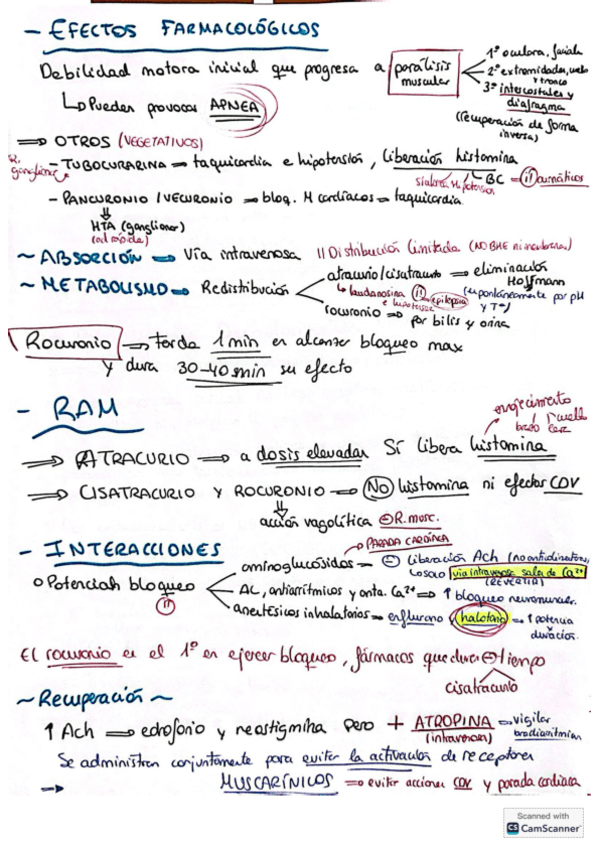 - EFECTOS FARMACOLÓGICOS
Debilidad motora inicial que progresa a parálisis muscular
1º oculora, facial
2º extremidades, cuello y tronco
3º intercostales y diafragma
(recuperación de forma inversa)
↳ Pueden provocar APNEA
⇒ OTROS (VEGETATIVOS)
R. ganglionar
- TUBOCURARINA ⇒ taquicardia e hipotensión, liberación histamina
↳ BC ⇒ (!!) asmáticos
- PANCURONIO / VECURONIO ⇒ bloq. M cardíacos ⇒ taquicardia
⇓
HTA (ganglionar)
~ ABSORCIÓN ⇒ Vía intravenosa || Distribución limitada (NO BHE ni
~ METABOLISMO ⇒ Redistribución
atracurio/cisatracurio ⇒ eliminación Hoffmann
(espontáneamente por pH y Tª)
↳ laudanosina (!!) → epilepsia
e hipotensión
rocuronio ⇒ por bilis y orina
Rocuronio → Tarda 1 min en alcanzar bloqueo max
y dura 30-40 min su efecto
- RAM
enrojecimiento
cuello
brazo cara
⇒ (A)TRACURIO ⇒ a dosis elevadas Sí libera histamina
⇒ CISATRACURIO Y ROCURONIO ⇒ (NO) histamina ni efectos CDV
⇓
acción vagolítica ⊖ R. musc.
- INTERACCIONES
→ PARADA CARDÍACA
o Potencian bloqueo
(!!)
aminoglucósidos ⇒ ⊖ liberación Ach (no anticolinesterásicos,
solo vía intravenosa sales de Ca²⁺
(REVERTIR)
AC, antiarrítmicos y anta. Ca²⁺ ⇒ ↑ bloqueo neuromuscular.
anestésicos inhalatorios ⇒ enflurano y halotano ⇒ ↑ potencia y duración.
El rocuronio es el 1º en ejercer bloqueo, fármacos que duren ⊖ tiempo
cisatracurio
~ Recuperación ~
↑ Ach ⇒ edrofonio y neostigmina pero + ATROPINA → vigilar bradiarritmias
(intravenosa)
Se administran conjuntamente para evitar la activación de receptores
MUSCARÍNICOS ⇒ evitar acciones CDV y parada cardíaca
→
Scanned with
CS CamScanner